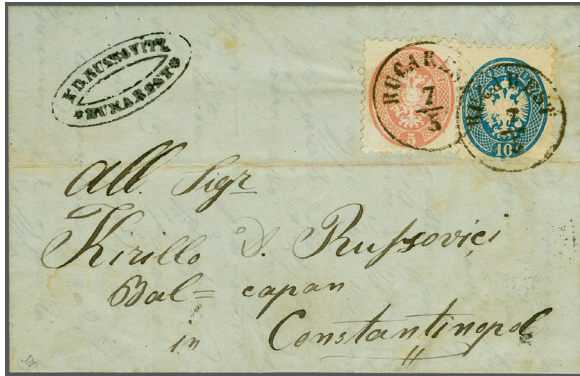 BUKAREST
BUCAREST
7/3
5
BUCAREST
7
10
All. Sigr
Kirillo D. Russovici
Bal= capan
in Constantinopol